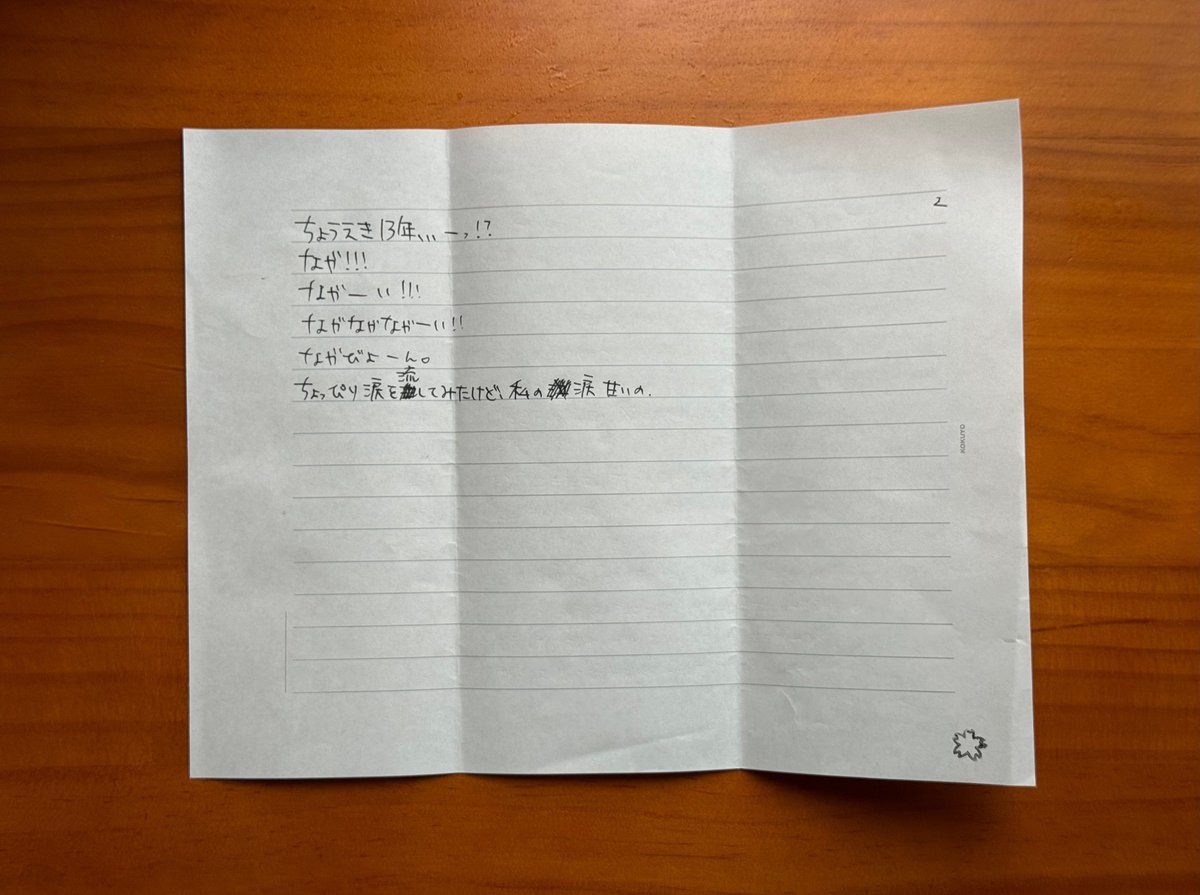 2
ちょうえき13年、、、ーっ!?
なが!!!
ながーい!!!
ながながながーい!!
ながびよーん。
ちょっぴり涙を流してみたけど、私の涙 甘いの.
KOKUYO